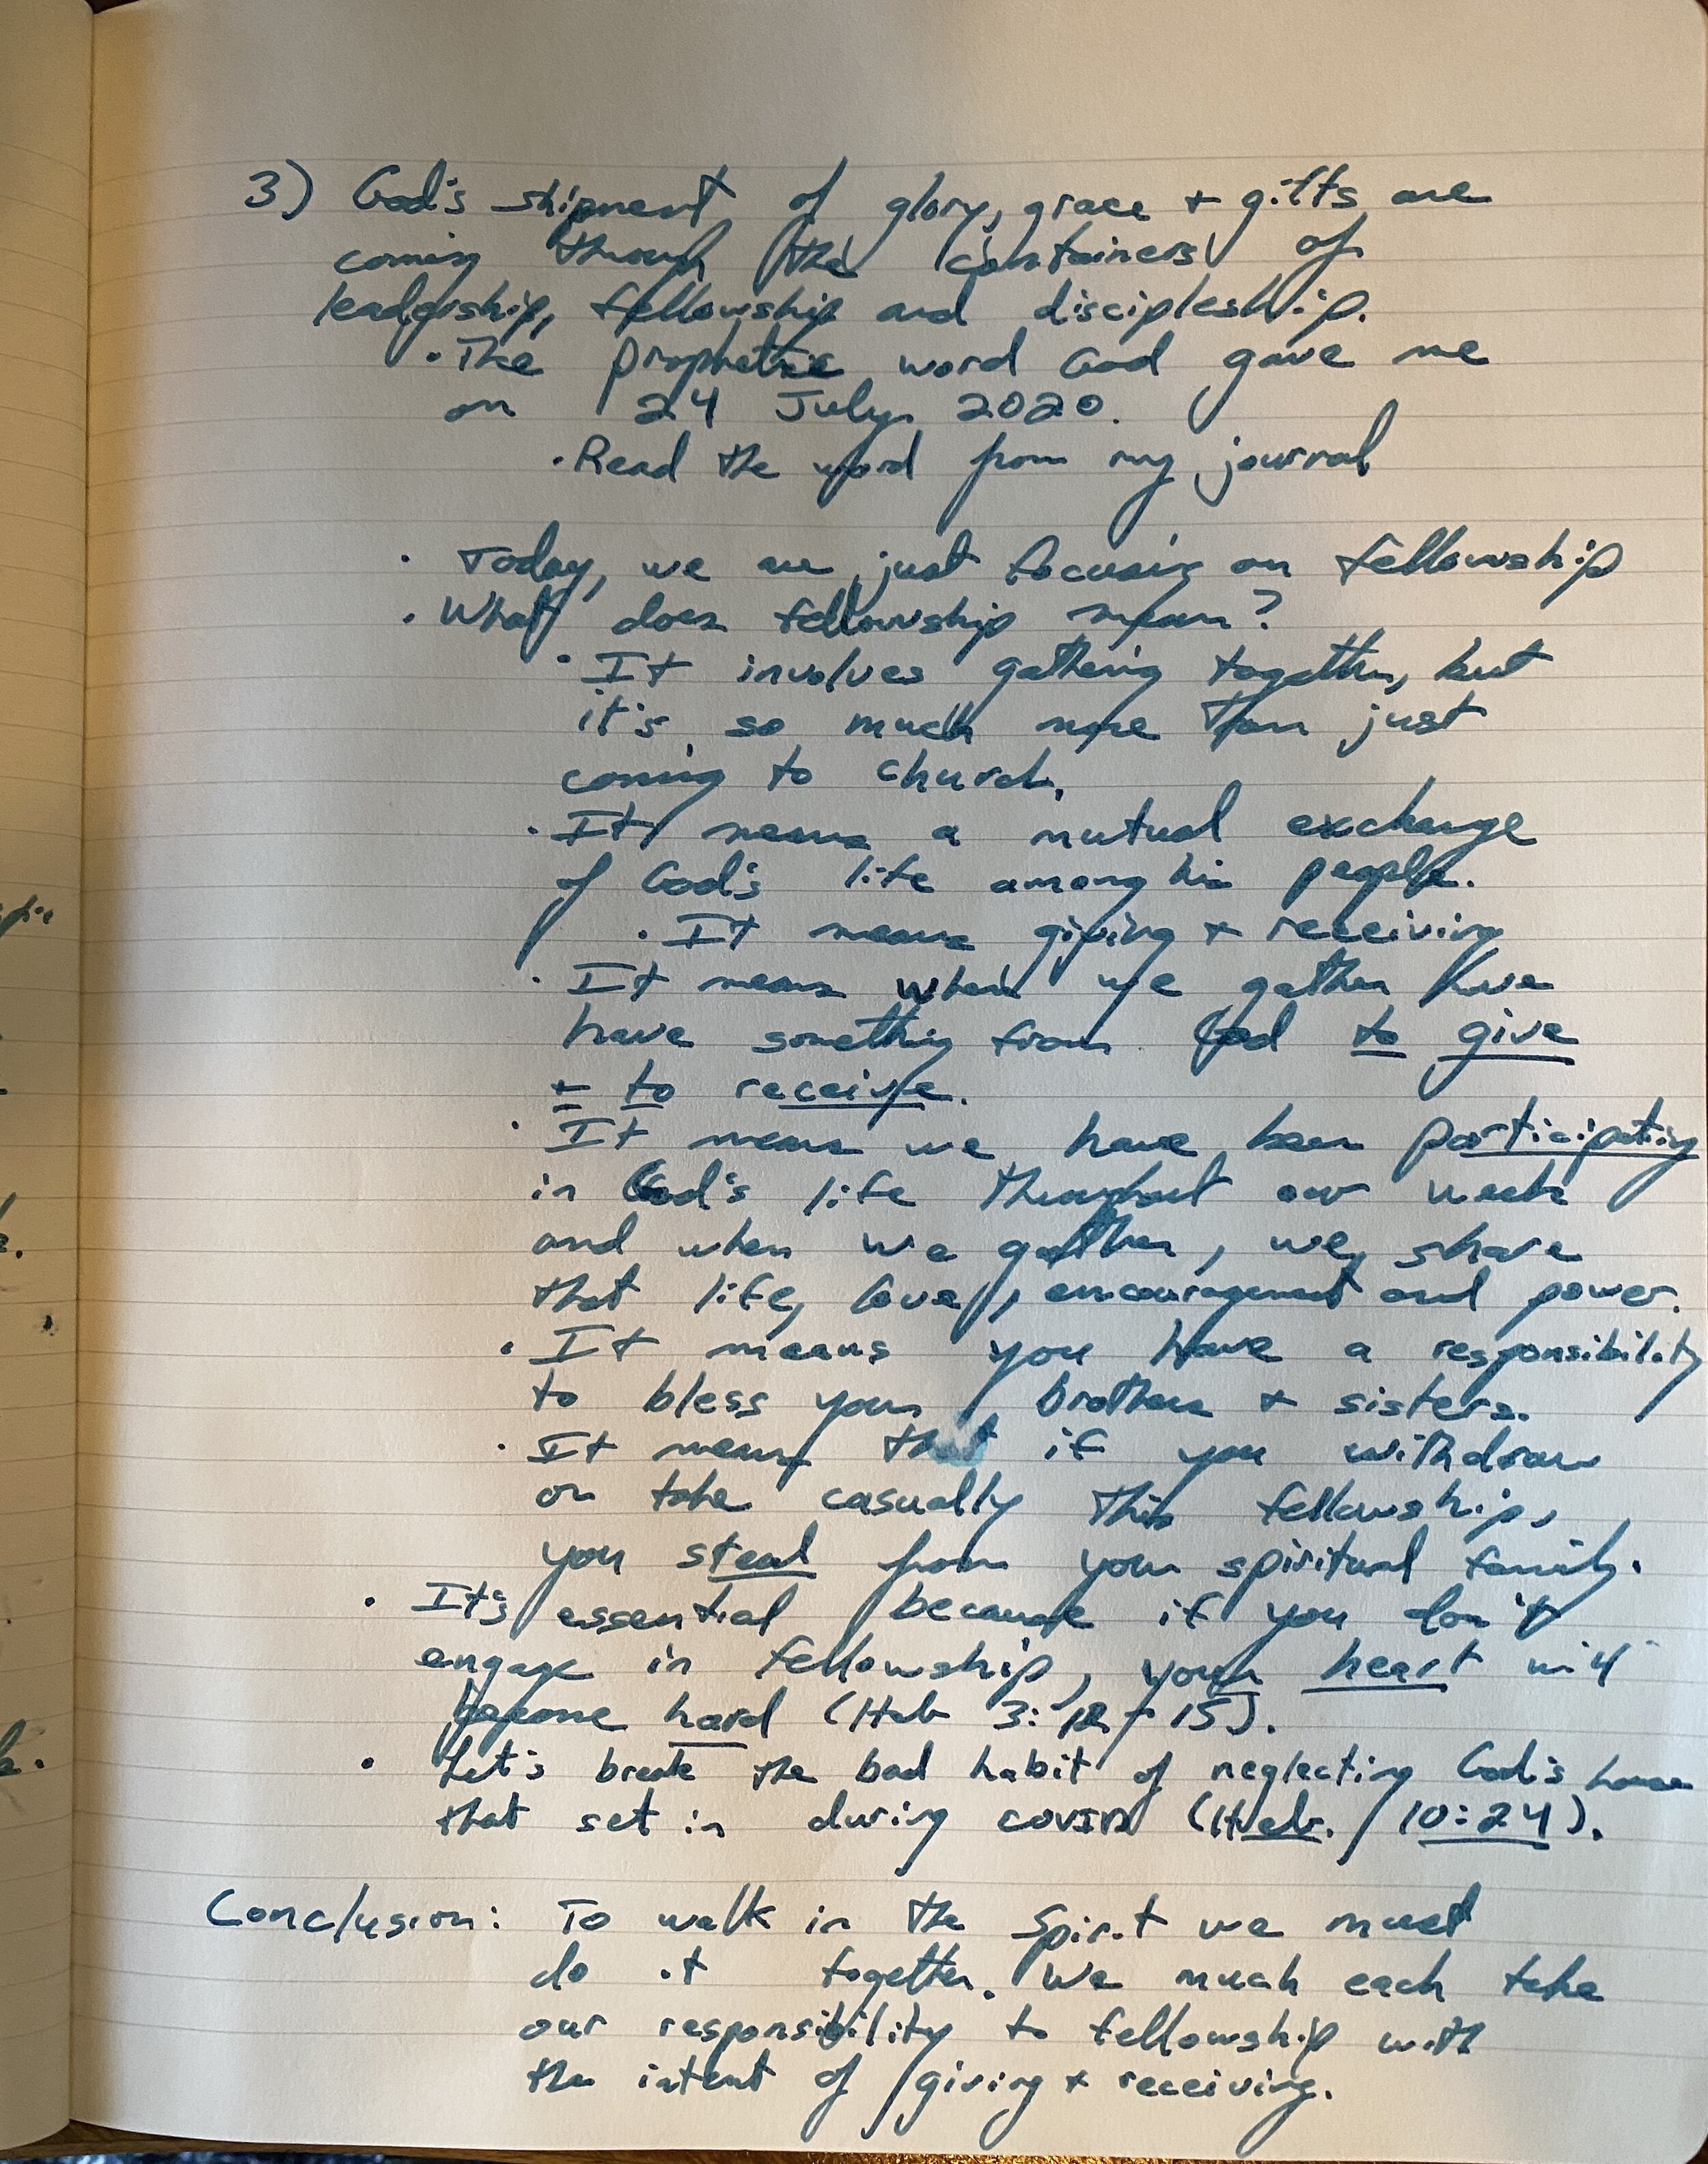 3) God's shipment of glory, grace + gifts are
coming through the containers of
leadership, fellowship and discipleship.
· The prophetic word God gave me
on 24 July 2020.
· Read the word from my journal
· Today, we are just focusing on fellowship
· What does fellowship mean?
· It involves gathering together, but
it's so much more than just
coming to church.
· It means a mutual exchange
of God's life among his people.
· It means giving + receiving
· It means when we gather
have something from God to give
+ to receive.
· It means we have been participating
in God's life throughout our week
and when we gather, we share
that life, love, encouragement and power.
· It means you have a responsibility
to bless your brothers + sisters.
· It means that if you withdraw
or take casually this fellowship,
you steal from your spiritual family.
· It's essential because if you don't
engage in fellowship, your heart will
become hard (Heb 3:12-15).
· Let's break the bad habit of neglecting God's house
that set in during COVID (Heb. 10:24).
Conclusion: To walk in the Spirit we must
do it together. We much each take
our responsibility to fellowship with
the intent of giving + receiving.